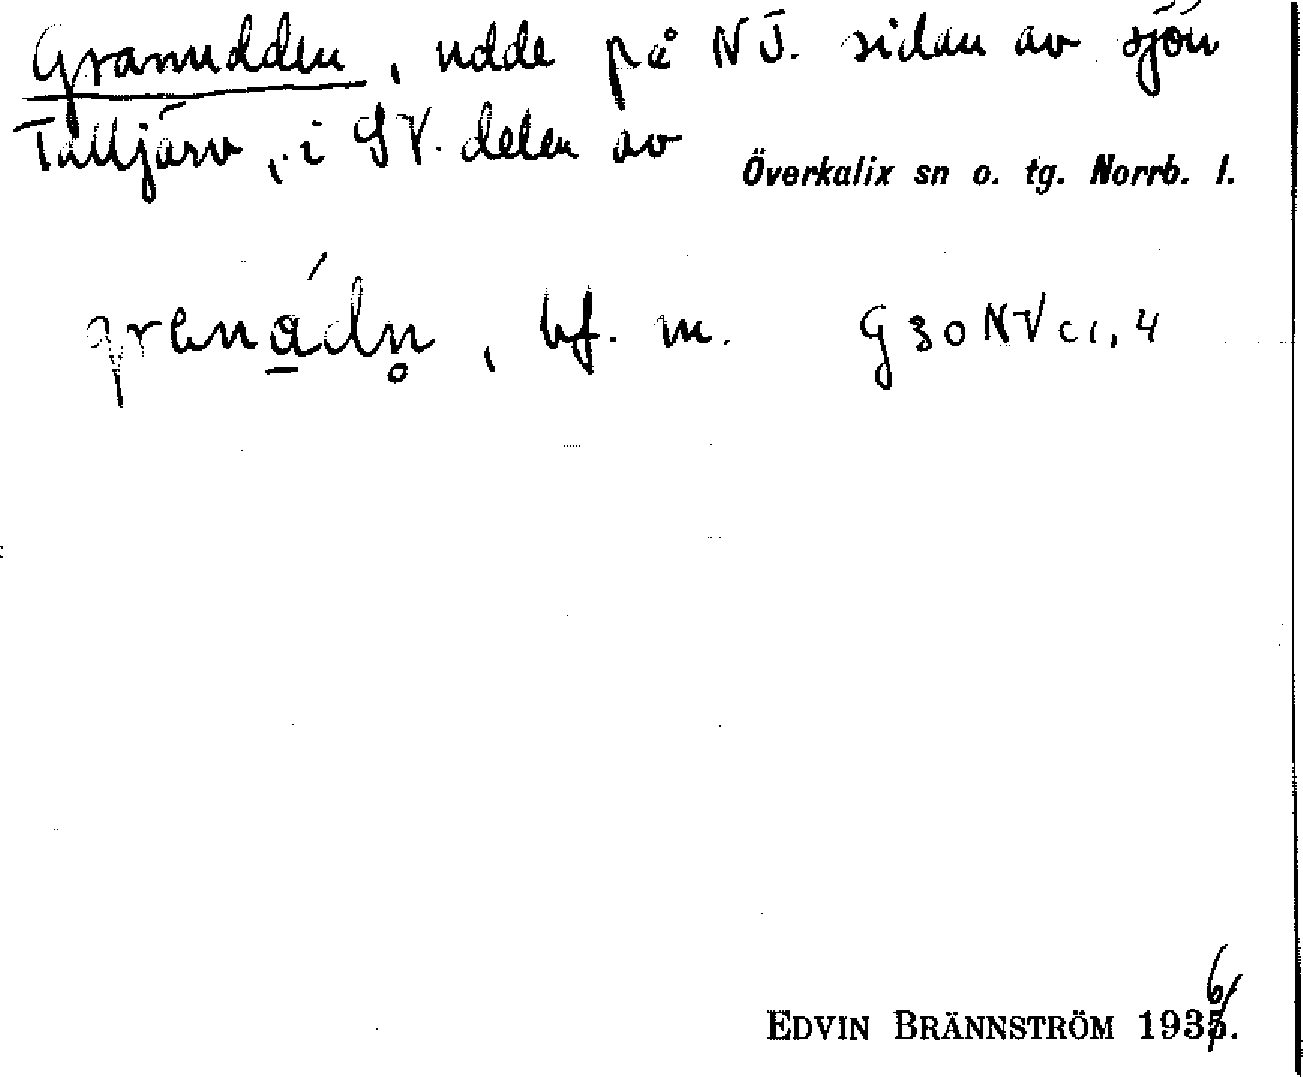 Granudden, udde på NÖ. sidan av sjön
Talljärv, i SV. delen av
Överkalix sn o. tg. Norrb. l.
grenádn̥, bf. m. G 30 NV c 1, 4
EDVIN BRÄNNSTRÖM 1936.